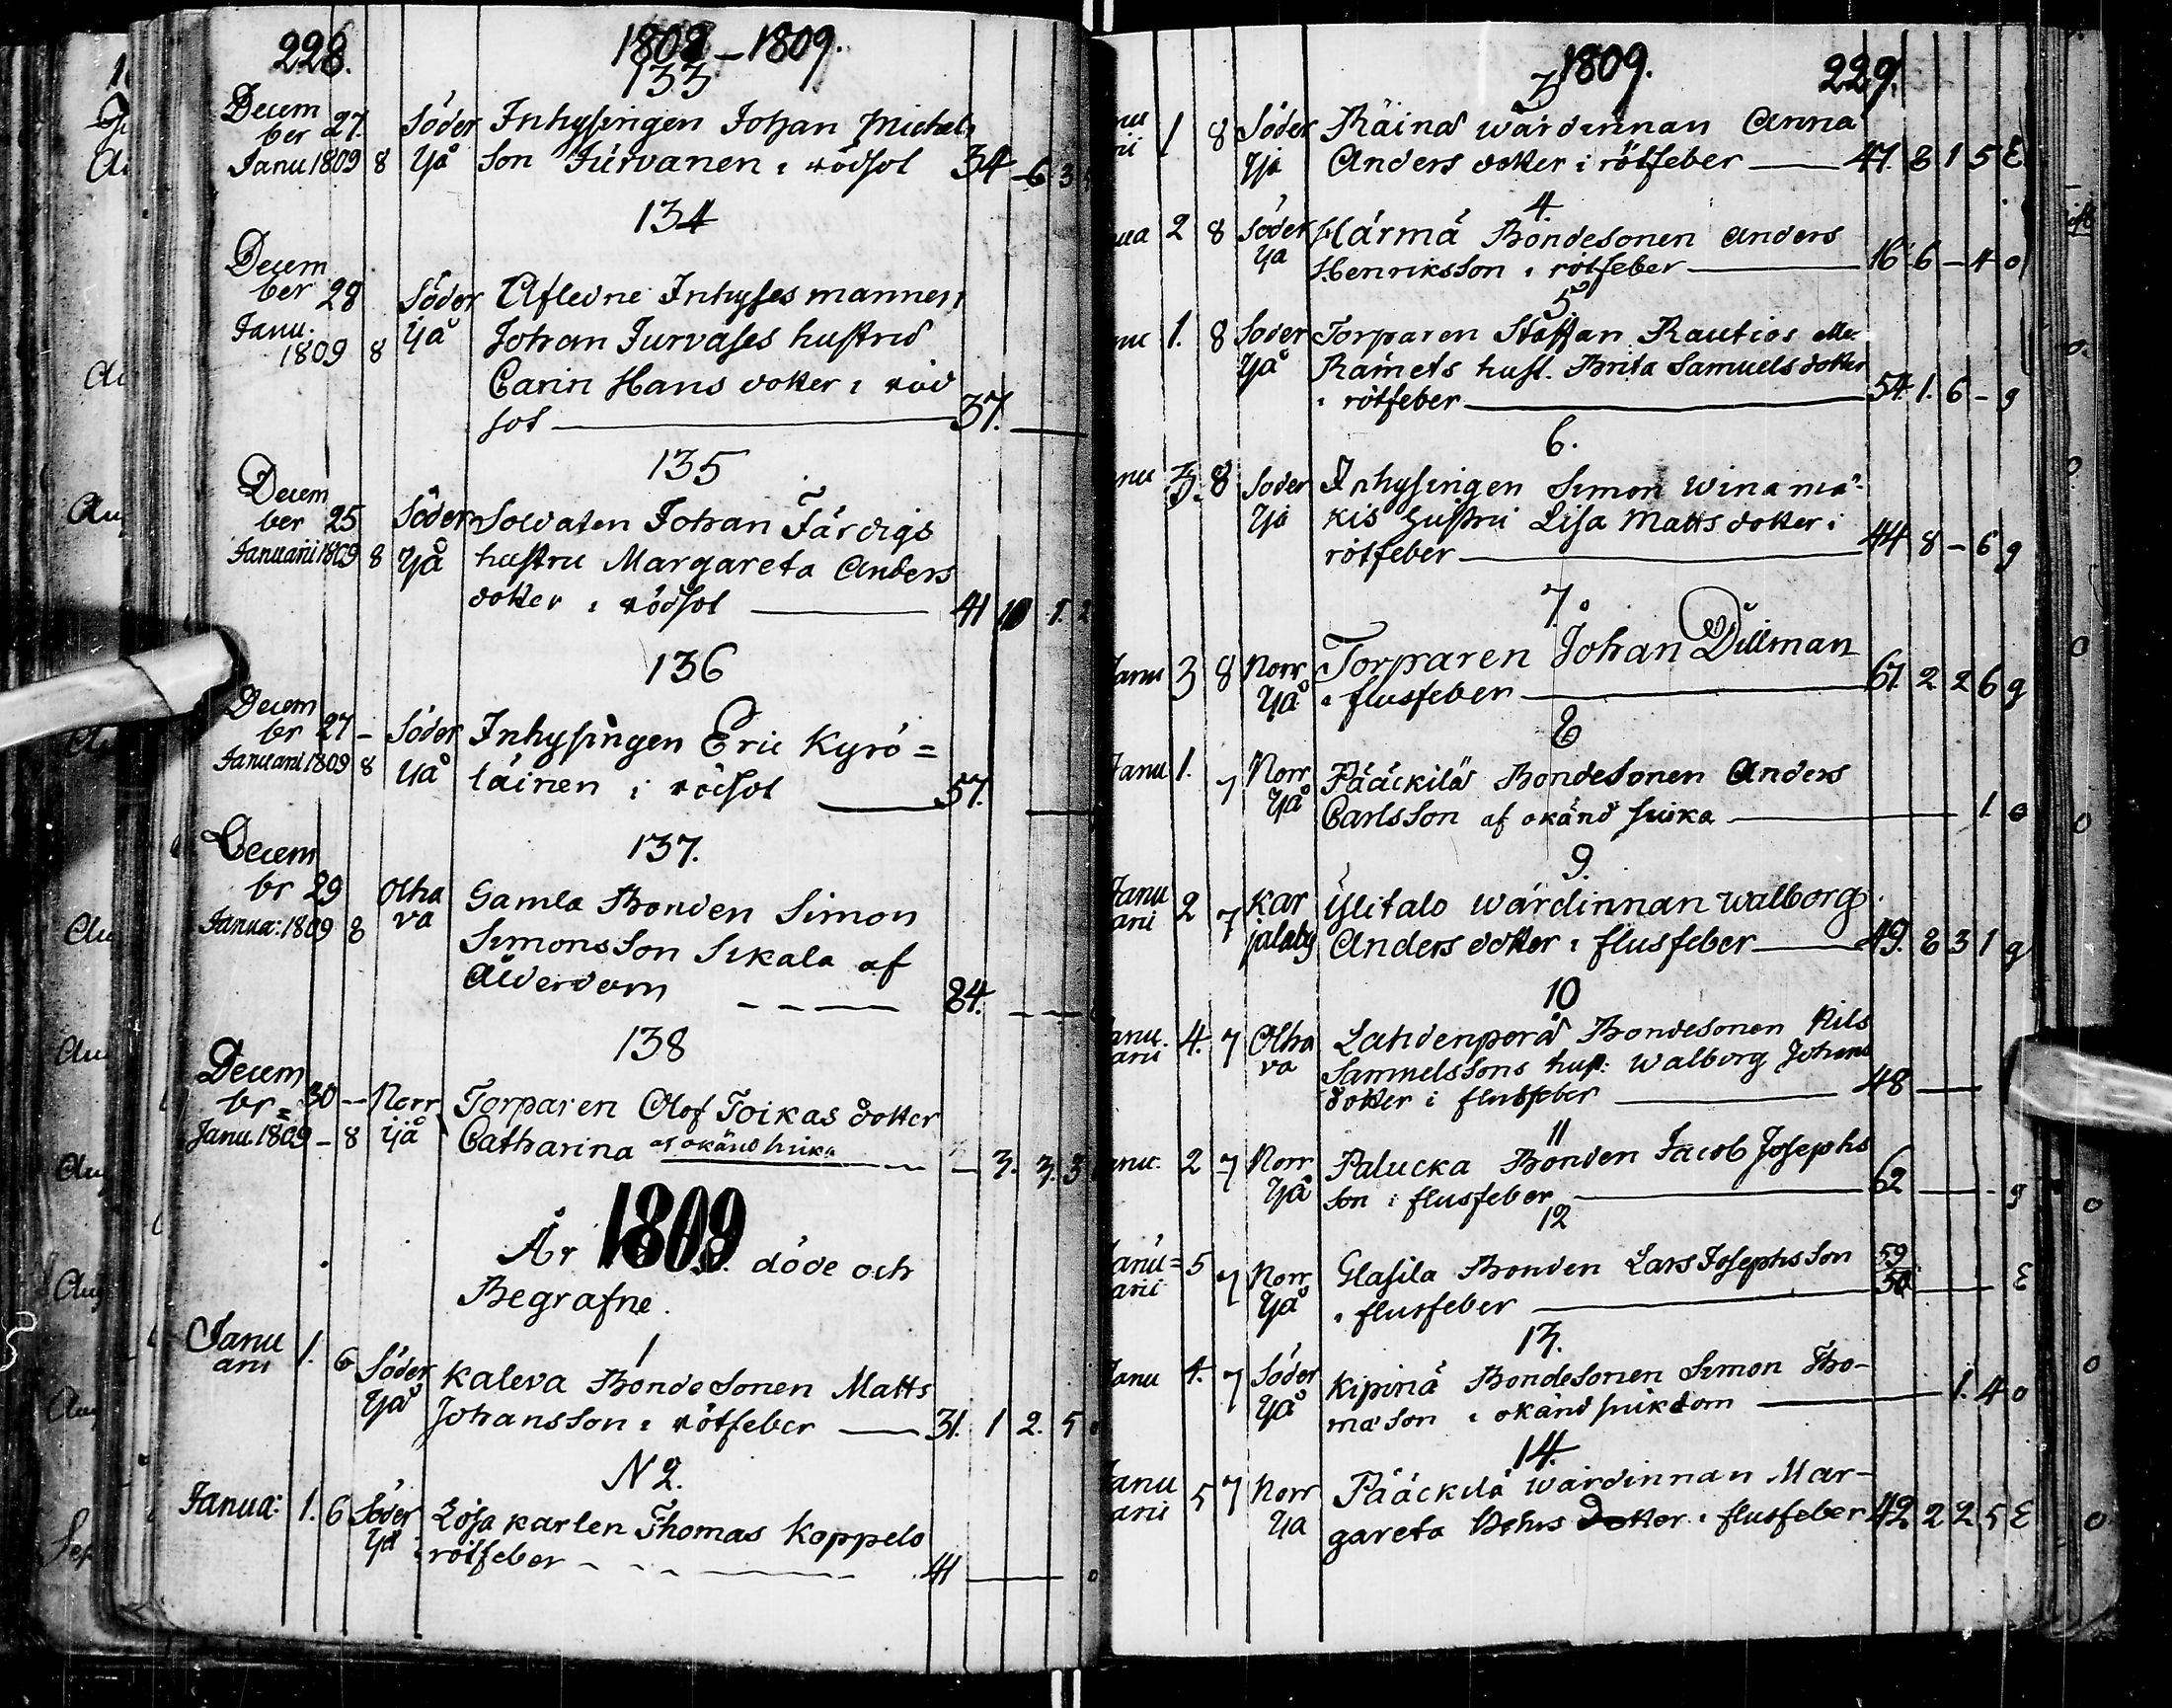 228.
1808 - 1809.
133
Decem
ber 27. Söder Inhysingen Johan Michels
Janu 1809 8 Ijå son Jurvanen i rödsot 34 - 6 3
134
Decem
ber 28 Söder Afledne Inhyses mannen
Janu. Ijå Johan Jurvases hustru
1809 8
Carin Hans dotter i röd
sot 37.
135
Decem
ber 25 Söder Soldaten Johan Färdigs
Januarii 1809 8 Ijå hustru Margareta Anders
dotter i rödsot 41 10 1. 2
136
Decem
br 27 - Söder Inhysingen Eric Kyrö =
Januarii 1809 8 Ijå läinen i rödsot 57.
137.
Decem
br 29 Olha Gamla Bonden Simon
Janua: 1809 8 va Simonsson Sikala af
Ålderdom 84.
138
Decem
br = 30 - Norr Torparen Olof Toikas dotter
Janu. 1809 - 8 Ijå Catharina af okänd siuka - 3. 3. 3
År 1809 döde och
Begrafne.
1
Janu
arii 1. 6 Söder Kaleva Bondesonen Matts
Ijå Johansson i rötfeber 31. 1 2. 5
N 2.
Janua: 1. 6 Söder Lösa karlen Thomas Koppelo
Ijå i rötfeber 41 o
1809. 229.
3
1 8 Söder Räinä wärdinnan Anna
Ijå Anders dotter i rötfeber 47. 8 1 5 E
4.
2 8 Söder Härmä Bondesonen Anders
Ijå Henriksson i rötfeber 16 6 - 4 o
5
1. 8 Söder Torparen Staffan Rautios
Ijå hust. Brita Samuels dotter
i rötfeber 54. 1. 6 - g
6.
3. 8 Söder Inhysingen Simon Winamä-
Ijå kis hustru Lisa Matts dotter i
rötfeber 44 8 - 6 g
7.
Janu 3 8 Norr Torparen Johan Dillman
Ijå i flusfeber 67. 2 2 6 g
8
Janu 1. 7 Norr Pääckilä Bondesonen Anders
Ijå Carlsson af okänd siuka 1 o
9.
Janu
arii 2 7 Kar Ylitalo wärdinnan Walborg
jalaby Anders dotter i flusfeber 49. 8 3 1 g
10
Janu.
arii 4. 7 Olha Lahdenperä Bondesonen Nils
va Samuelssons hust: Walborg Johans
dotter i flusfeber 48
11
2 7 Norr Palucka Bonden Jacob Josephs
Ijå son i flusfeber 62 g
12
Janu =
arii 5 7 Norr Glasila Bonden Lars Josephsson 59
Ijå i flusfeber 50 E
13.
Janu 4. 7 Söder Kipinä Bondesonen Simon Tho-
Ijå masson i okänd siukdom 1. 4 o
14.
Janu
arii 5 7 Norr Pääckilä wärdinnan Mar-
Ijå gareta dotter i flusfeber 42 2 2 5 E